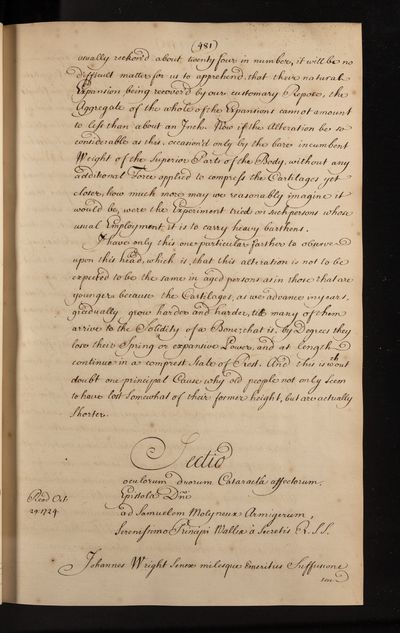 (481)
usually reckon'd about twenty four in number, it will be no
difficult matter for us to apprehend that their natural
Expansion being recover'd by our customary Repose, the
Aggregate of the whole of the Expansions cannot amount
to less than about an Inch. Now if the Alteration be so
considerable as this, occasion'd only by the bare incumbent
Weight of the Superior Parts of the Body, without any
additional Force applied to compress the Cartilages yet
closer, how much more may we reasonably imagine it
would be, were the Experiment tried on such persons whose
usual Employment it is to carry heavy burthens.
I have only this one particular farther to observe
upon this head, which is, that this alteration is not to be
expected to be the same in aged persons as in those that are
younger because the Cartilages, as we advance in years,
gradually grow harder and harder, till many of them
arrive to the Solidity of a Bone; that is, by Degrees they
lose their Spring or expansive Power, and at length
continue in a comprest State of Rest. And this is wth out
doubt one principal Cause why old people not only seem
to have lost somewhat of their former height, but are actually
shorter.
Sectio
oculorum duorum Cataracta affectorum.
Epistola
Read Oct.
24. 1724
ad Samuelem Molyneux Armigerum,
Serenissimo Principi Walliæ à Secretis R.S.S.
Johannes Wright Senex milesque Emeritus Suffusione